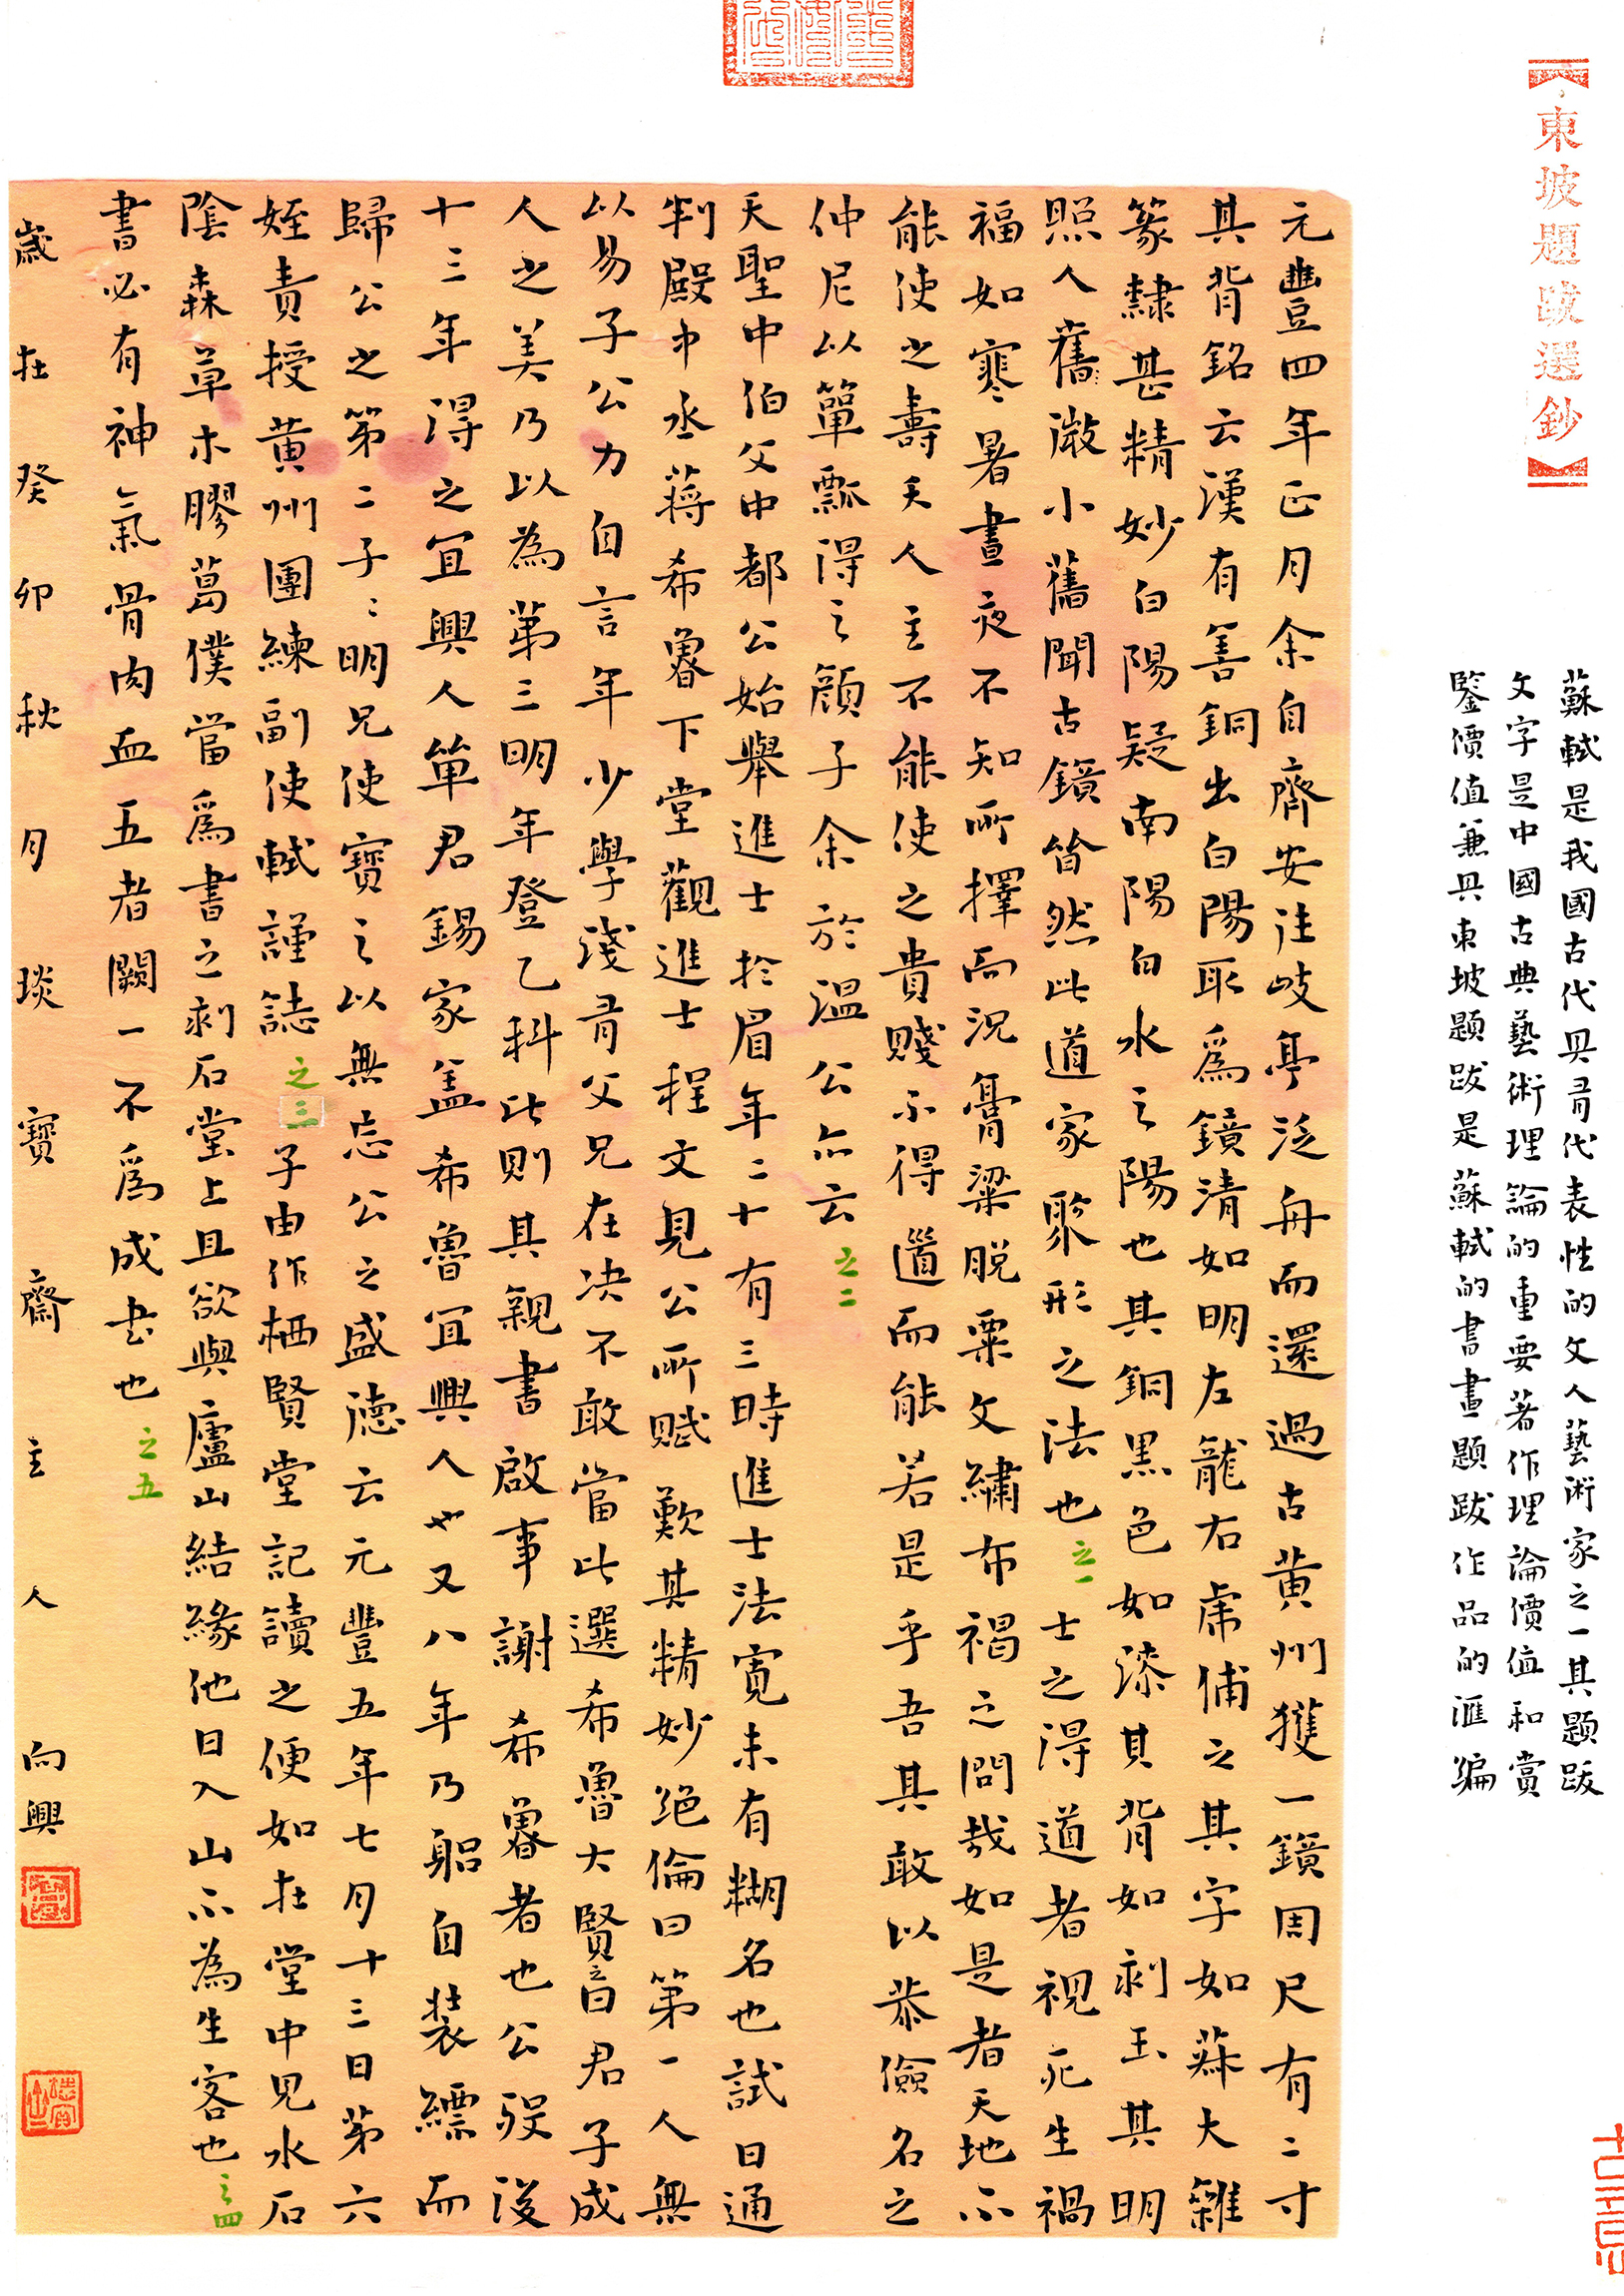 【東坡題跋選鈔】
蘇軾是我國古代具有代表性的文人藝術家之一其題跋
文字是中國古典藝術理論的重要著作理論價值和賞
鑒價值兼具東坡題跋是蘇軾的書畫題跋作品的匯編
元豐四年正月余自齊安往岐亭泛舟而還過古黃州獲一鏡周尺有二寸
其背銘云漢有善銅出白陽取爲鏡清如明左龍右虎俌之其字如菻大雜
篆隸甚精妙白陽疑南陽白水之陽也其銅黑色如漆其背如刻玉其明
照人舊微小舊聞古鏡皆然此道家聚形之法也之一士之得道者視死生禍
福如寒暑晝夜不知所擇而況膏粱脫粟文繡布褐之間哉如是者天地不
能使之壽夭人主不能使之貴賤不得道而能若是乎吾其敢以恭儉名之
仲尼以簞瓢得之顏子余於溫公亦云之二
天聖中伯父中都公始舉進士於眉年二十有三時進士法寬未有糊名也試日通
判殿中丞蔣希魯下堂觀進士程文見公所賦歎其精妙絕倫曰第一人無
以易子公力自言年少學淺有父兄在决不敢當此選希魯大賢之曰君子成
人之美乃以為第三明年登乙科此則其親書啟事謝希魯者也公歿後
十三年得之宜興人單君錫家蓋希魯宜興人也又八年乃躬自裝縹而
歸公之第二子〻明兄使寶之以無忘公之盛德云元豐五年七月十三日第六
姪責授黃州團練副使軾謹誌之三子由作栖賢堂記讀之便如在堂中見水石
陰森草木膠葛僕當爲書之刻石堂上且欲與廬山結緣他日入山不為生客也之四
書必有神氣骨肉血五者闕一不爲成書也之五
歲在癸卯秋月琰寶齋主人向興